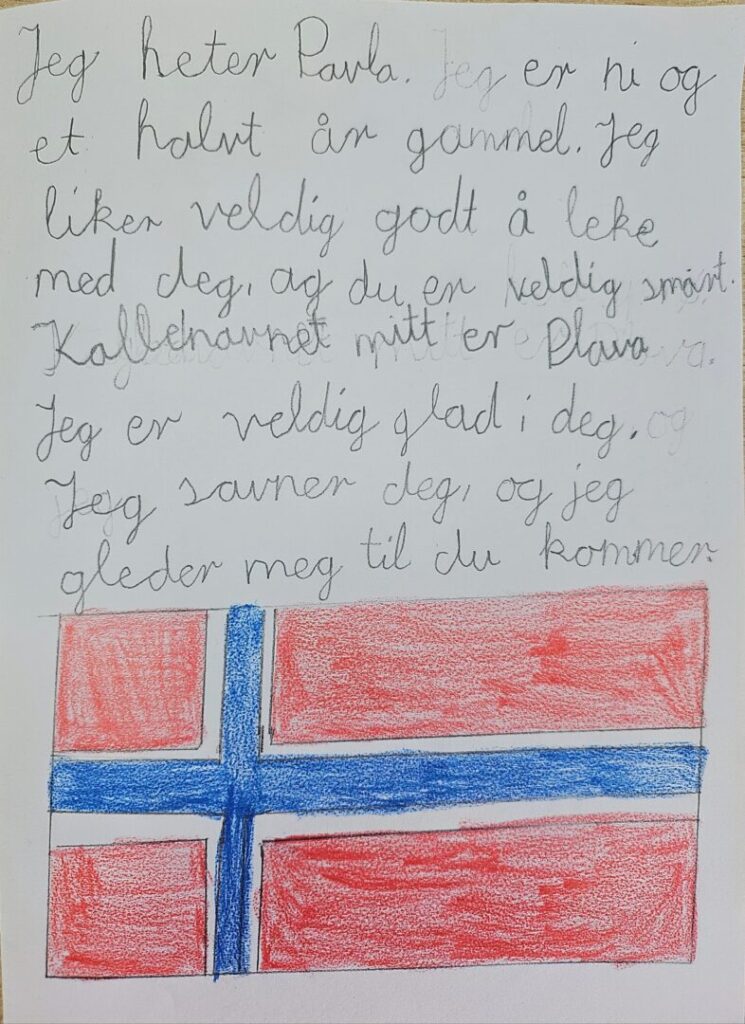 Jeg heter Pavla. Jeg er ni og
et halvt år gammel. Jeg
liker veldig godt å leke
med deg, og du er veldig smart.
Kallenavnet mitt er Plava
Jeg er veldig glad i deg. og
Jeg savner deg, og jeg
gleder meg til du kommer.